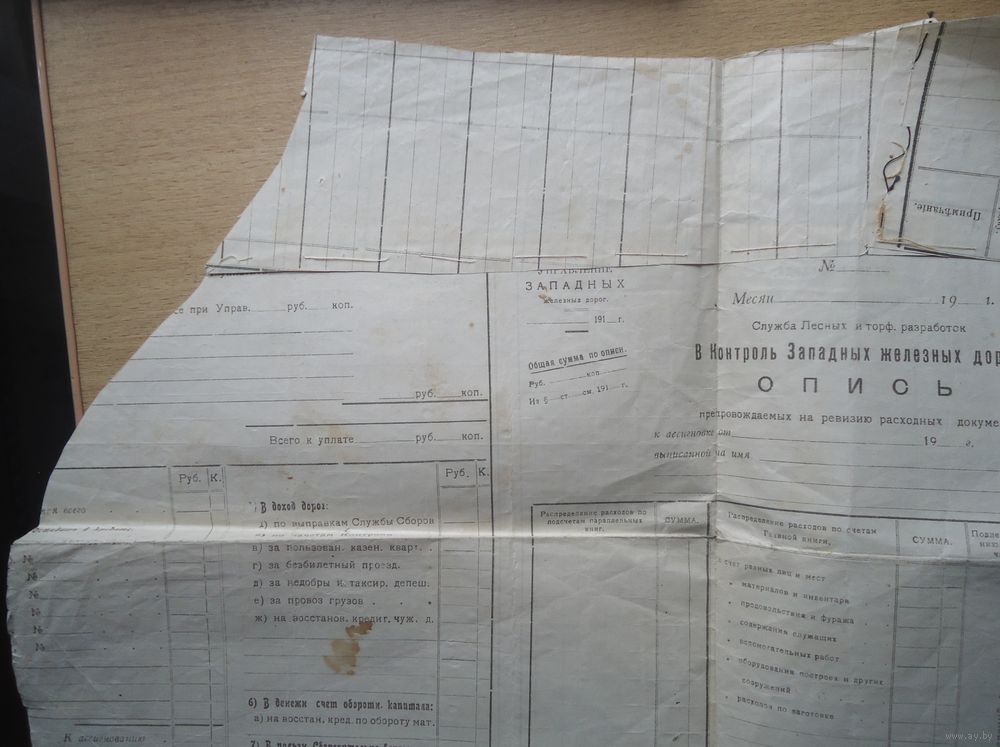 Примѣчаніе.
№
Месяц 19 г.
Служба Лесных и торф. разработок
В Контроль Западных железных дор
ОПИСЬ
препровождаемых на ревизию расходных докуме
к ассигновке от 19 г.
выписанной на имя
УПРАВЛЕНИЕ
ЗАПАДНЫХ
железных дорог.
191 г.
Общая сумма по описи.
Руб. коп.
Из § ст. см. 191 г.
се при Управ. руб. коп.
руб. коп.
Всего к уплате руб. коп.
Руб. К.
всего
№
№
№
№
№
№
К ассигнованию
Руб. К.
В доход дорог:
по выправкам Службы Сборов
в) за пользован. казен. кварт.
г) за безбилетный проезд.
д) за недобры и таксир. депеш.
е) за провоз грузов
ж) на восстанов. кредит. чуж. д.
6) В денежн счет оборотн. капитала:
а) на восстан. кред. по обороту мат.
Распределение расходов по
подсчетам параллельных
книг.
СУММА.
Распределение расходов по счетам
Главной книги.
СУММА.
счет разных лиц и мест
" материалов и инвентаря
" продовольствия и фуража
" содержания служащих
" вспомогательных работ
" оборудования построек и других
сооружений
" расходов по заготовке
www.ay.by